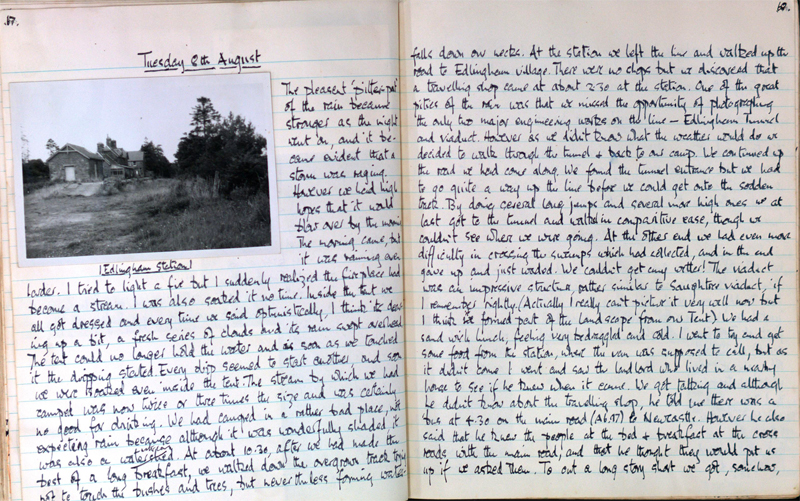 67.
Tuesday 8th August
The pleasent 'pitter-pat'
of the rain became
stronger as the night
went on, and it be-
came evident that a
storm was raging.
However we held high
hopes that it would
blow over by the morning
The morning came, but
it was raining even
[Edlingham Station]
harder. I tried to light a fire but I suddenly realized the fireplace had
become a stream. I was also soaked it no time. Inside the tent we
all got dressed and every time we said optimistically, I think its clear-
ing up a bit, a fresh series of clouds and its rain swept overhead
The tent could no longer hold the water and as soon as we touched
it the dripping stated. Every drip seemed to start another and soon
we were soaked even inside the tent. The stream by which we had
camped was now twice or three times the size and was certainly
no good for drinking. We had camped in a rather bad place, not
expecting rain because although it was wonderfully shaded, it
was also a watershed. At about 10.30 after we had made the
best of a long breakfast, we walked down the overgrown track trying
not to touch the bushes and trees, but nevertheless forming
68.
falls down our necks. At the station we left the line and walked up the
road to Edlingham village. There were no shops but we discovered that
a travelling shop came at about 2.30 at the station. One of the great
pities of the rain was that we missed the opportunity of photographing
the only two major engineering works on the line – Edlingham Tunnel
and viaduct. However as we didn't know what the weather would do we
decided to walk through the tunnel & back to our camp. We continued up
the road we had come along. We found the tunnel entrance but we had
to go quite a way up the line before we could get onto the sodden
track. By doing several long jumps and several more high ones we at
last got to the tunnel and walked in comparitive ease, though we
couldn't see where we were going. At the other end we had even more
difficulty in crossing the swamps which had collected, and in the end
gave up and just waded. We couldn't get any wetter! The viaduct
was an impressive structure, rather similar to Saughtree viaduct, if
I remember rightly. (Actually I really can't picture it very well now but
I think we formed part of the landscape from our Tent) We had a
sandwich lunch, feeling very bedraggled and cold. I went to try and get
some food from the station, where the van was supposed to call, but as
it didn't come I went and saw the landlord who lived in a nearby
house to see if he knew when it came. We got talking and although
he didn't know about the travelling shop, he told me there was a
bus at 4.30 on the main road (A697) to Newcastle. However he also
said that he knew the people at the bed & breakfast at the cross
roads with the main road, and that he thought they would put us
up if we asked them. To cut a long story short we got, somehow,